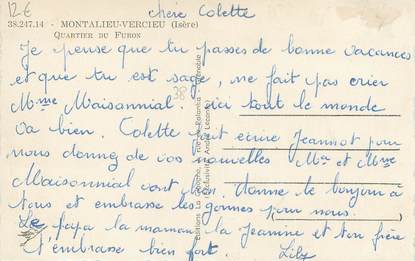 12€
chère Colette
38.247.14 - MONTALIEU-VERCIEU (Isère)
QUARTIER DU FURON
Je pense que tu passes de bonne vacances
et que tu est sage, ne fait pas crier
Mme Maisonnial ici tout le monde
va bien. Colette fait écrire Jeannot pour
nous donnez de vos nouvelles Mr et Mme
Maisonnial vont bien donne le bonjour à
tous et embrasse les gonnes pour nous.
Le papa la maman la Jeanine et ton frère
t'embrasse bien fort. Lily
38